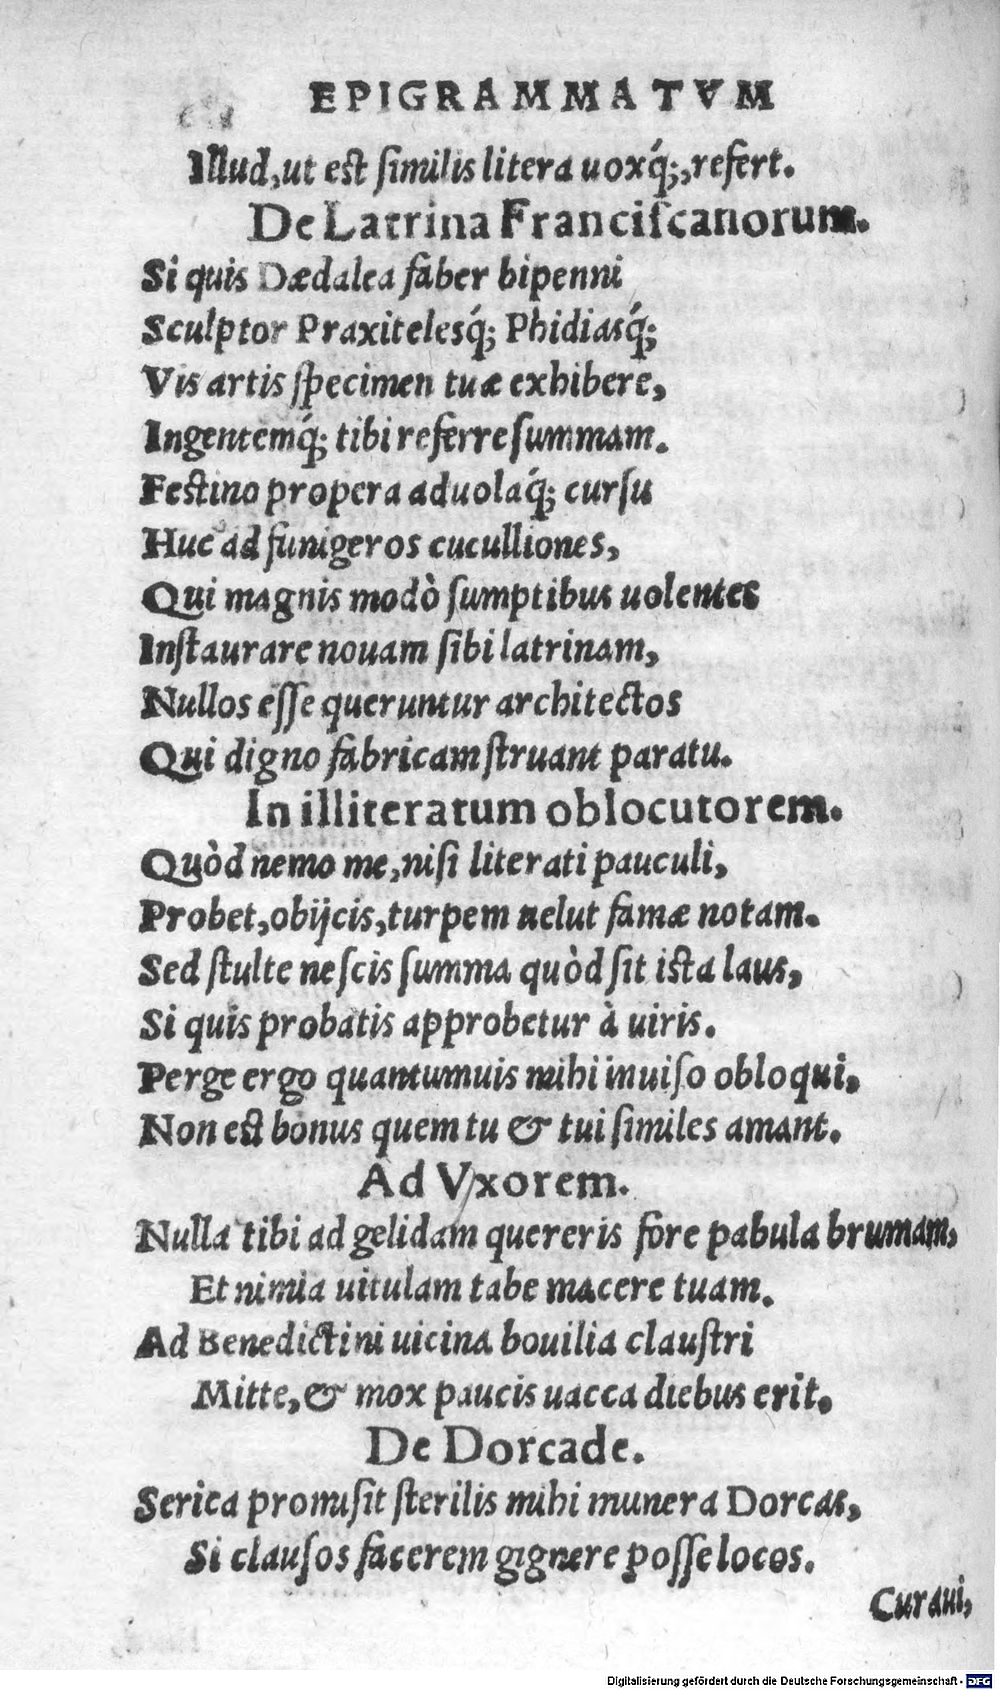 EPIGRAMMATVM
Illud, ut est similis litera uoxq́;, refert.
De Latrina Franciſcanorum.
Si quis Dædalea faber bipenni
Sculptor Praxitelesq́; Phidiasq́;
Vis artis ſpecimen tuæ exhibere,
Ingentemq́; tibi referre ſummam.
Feſtino propera aduolaq́; curſu
Huc ad funigeros cuculliones,
Qui magnis modò ſumptibus uolentes
Inſtaurare nouam ſibi latrinam,
Nullos eſſe queruntur architectos
Qui digno fabricam ſtruant paratu.
In illiteratum oblocutorem.
Quòd nemo me, niſi literati pauculi,
Probet, obijcis, turpem uelut famæ notam.
Sed ſtulte neſcis ſumma quòd ſit iſta laus,
Si quis probatis approbetur à uiris.
Perge ergo quantumuis mihi inuiſo obloqui,
Non eſt bonus quem tu & tui ſimiles amant.
Ad Vxorem.
Nulla tibi ad gelidam quereris fore pabula brumam,
Et nimia uitulam tabe macere tuam.
Ad Benedictini uicina bouilia clauſtri
Mitte, & mox paucis uacca diebus erit.
De Dorcade.
Serica promiſit ſterilis mihi munera Dorcas,
Si clauſos facerem gignere poſſe locos.
Curaui,
Digitalisierung gefördert durch die Deutsche Forschungsgemeinschaft - DFG